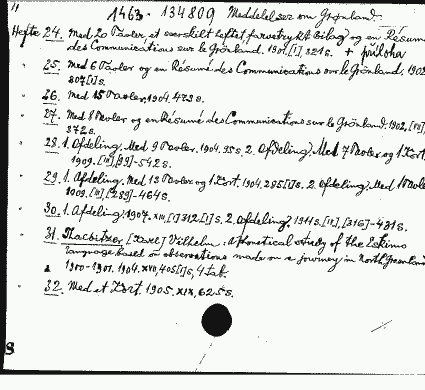 11 1463. 134809 Meddelelser om Grønland.
Hefte 24. Med 20 Tavler, et særskilt heftet farvetrykt Bilag og en Résumé
des Communications sur le Grönland. 1901. [I] 321 s. + příloha
25. Med 6 Tavler og en Résumé des Communications sur le Grönland. 1902
307 [I] s.
26. Med 15 Tavler, 1904. 473 s.
27. Med 8 Tavler og en Résumé des Communications sur le Grönland. 1902,
372 s.
28. 1. Afdeling. Med 9 Tavler. 1904. 95 s. 2. Afdeling. Med 7 Tavler og 1 Kort.
1909. [III], [99]-542 s.
29. 1. Afdeling. Med 13 Tavler og 1 Kort. 1904. 285 [I] s. 2. Afdeling. Med Tavler
1909. [III], [289]-464 s.
30. 1. Afdeling. 1907. XIII, [I] 312 [I] s. 2. Afdeling. 1911 s. [IV], [316]-431 s.
31. Thalbitzer, [Karl] Vilhelm. A phonetical study of the Eskimo
language based on observations made on a journey in North Greenland
1900-1901. 1904. XVII, 405 [I] s, 4 tab.
32. Med et Kort. 1905. XIX, 625 s.
8